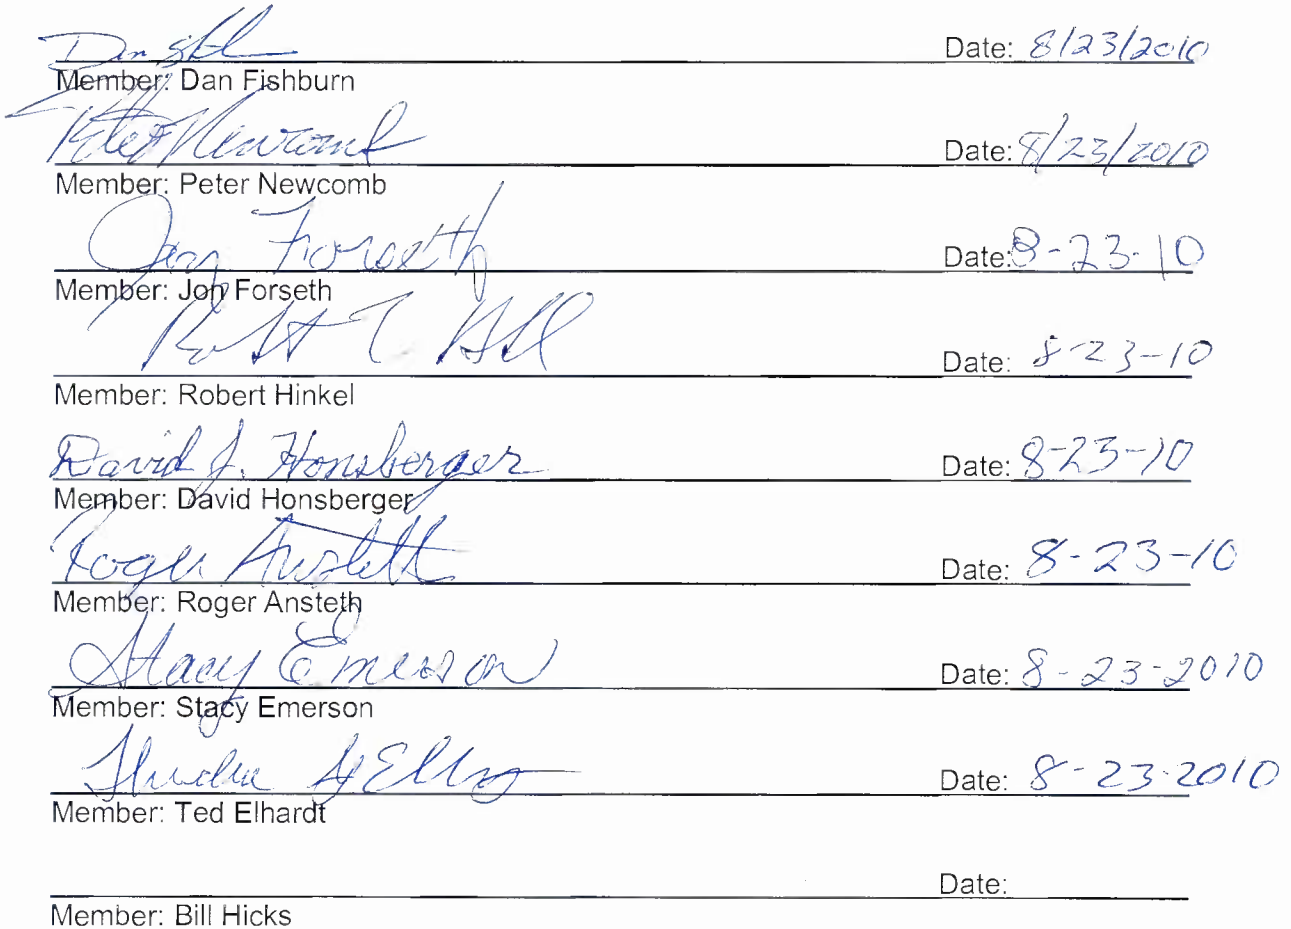 Dan Date: 8/23/2010
Member: Dan Fishburn
Peter Newcomb Date: 8/23/2010
Member: Peter Newcomb
Jon Forseth Date: 8-23-10
Member: Jon Forseth
Date: 8-23-10
Member: Robert Hinkel
David J. Honsberger Date: 8-23-10
Member: David Honsberger
Roger Ansteth Date: 8-23-10
Member: Roger Ansteth
Stacy Emerson Date: 8-23-2010
Member: Stacy Emerson
Date: 8-23-2010
Member: Ted Elhardt
Date:
Member: Bill Hicks